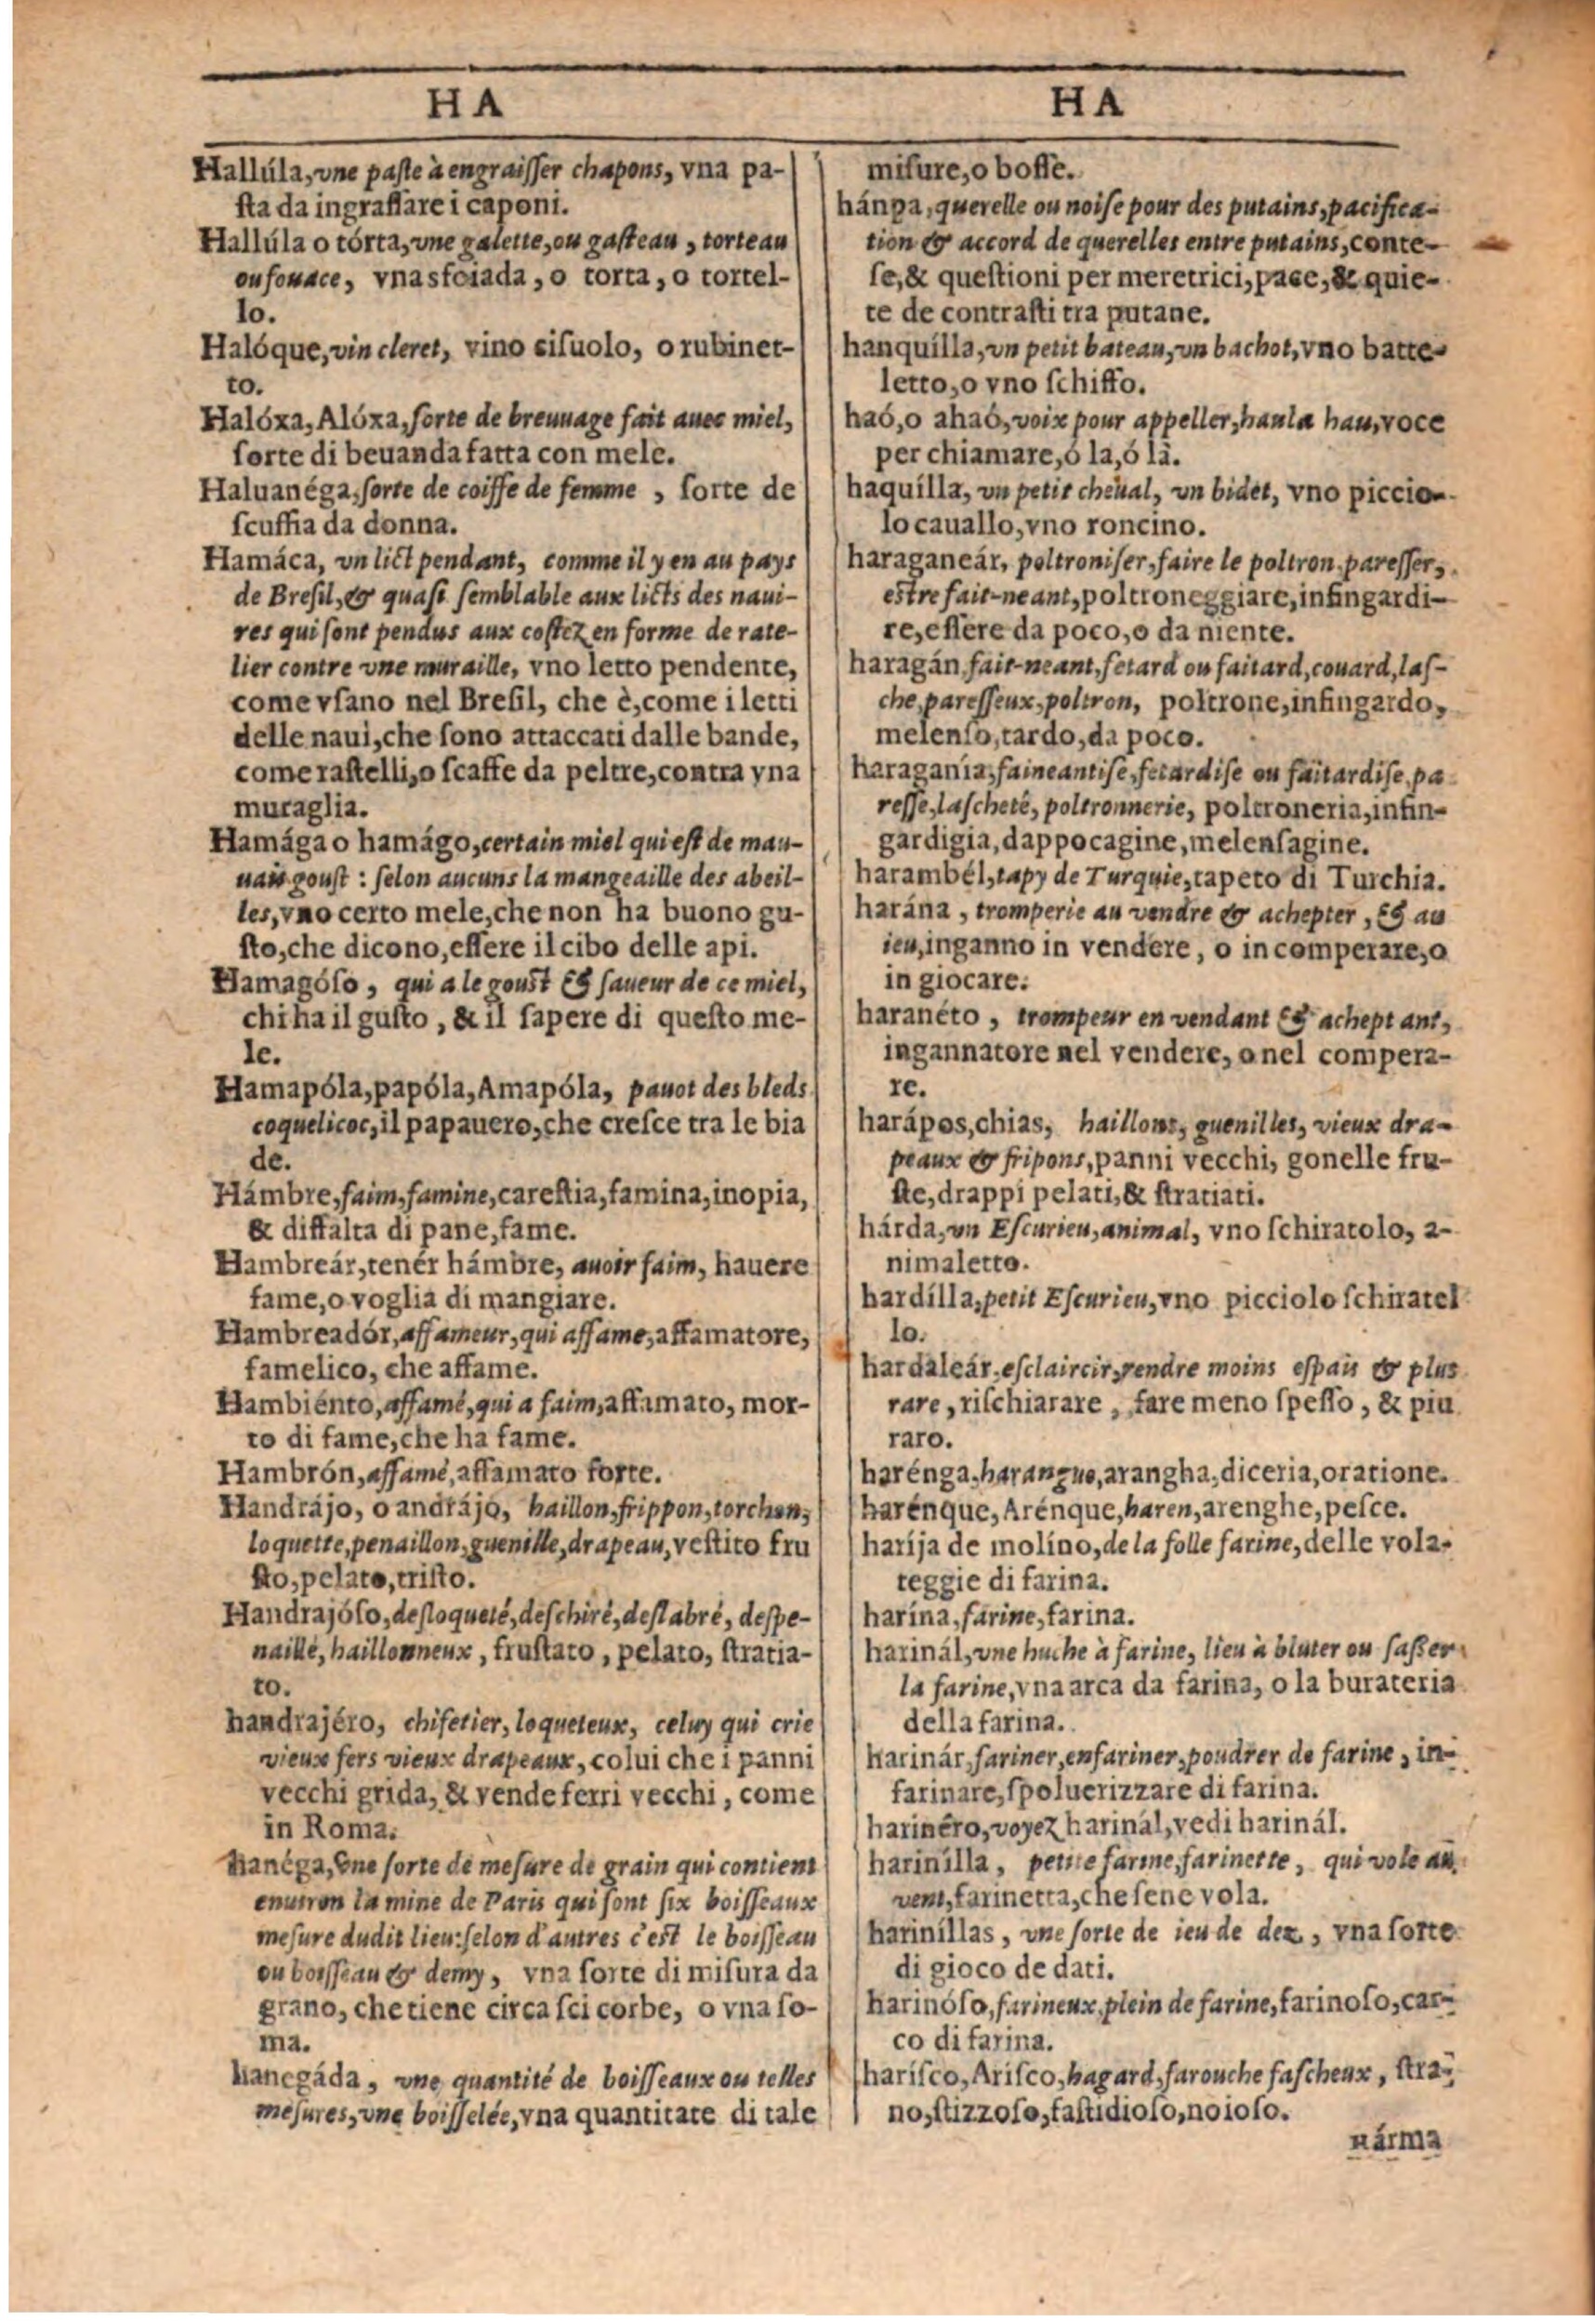 HA
Hallúla, vne paſte à engraiſſer chapons, vna pa-
ſta da ingraſſare i caponi.
Hallúla o tórta, vne galette, ou gaſteau, torteau
ou fouace, vna sfoiada, o torta, o tortel-
lo.
Halóque, vin cleret, vino cisuolo, o rubinet-
to.
Halóxa, Alóxa, ſorte de breuuage fait auec miel,
ſorte di beuanda fatta con mele.
Haluanéga, ſorte de coiffe de femme, ſorte de
ſcuffia da donna.
Hamáca, vn lict pendant, comme il y en au pays
de Breſil, & quaſi ſemblable aux licts des naui-
res qui ſont pendus aux coſtez en forme de rate-
lier contre vne muraille, vno letto pendente,
come vſano nel Breſil, che è, come i letti
delle naui, che ſono attaccati dalle bande,
come raſtelli, o ſcaffe da peltre, contra vna
muraglia.
Hamága o hamágo, certain miel qui eſt de mau-
uais gouſt : ſelon aucuns la mangeaille des abeil-
les, vno certo mele, che non ha buono gu-
ſto, che dicono, eſſere il cibo delle api.
Hamagóſo, qui a le gouſt & ſaueur de ce miel,
chi ha il guſto, & il ſapere di queſto me-
le.
Hamapóla, papóla, Amapóla, pauot des bleds
coquelicoc, il papauero, che creſce tra le bia
de.
Hámbre, faim, famine, careſtia, famina, inopia,
& diffalta di pane, fame.
Hambreár, tenér hámbre, auoir faim, hauere
fame, o voglia di mangiare.
Hambreadór, affameur, qui affame, affamatore,
famelico, che affame.
Hambiénto, affamé, qui a faim, affamato, mor-
to di fame, che ha fame.
Hambrón, affamé, affamato forte.
Handrájo, o andrájo, haillon, frippon, torchon,
loquette, penaillon, guenille, drapeau, veſtito fru
ſto, pelato, triſto.
Handrajóſo, desloqueté, deſchiré, deslabré, deſpe-
naillé, haillonneux, fruſtato, pelato, ſtratia-
to.
handrajéro, chifetier, loqueteux, celuy qui crie
vieux fers vieux drapeaux, colui che i panni
vecchi grida, & vende ferri vecchi, come
in Roma.
hanéga, vne ſorte de meſure de grain qui contient
enuiron la mine de Paris qui ſont ſix boiſſeaux
meſure dudit lieu: ſelon d'autres c'eſt le boiſſeau
ou boiſſeau & demy, vna ſorte di miſura da
grano, che tiene circa ſei corbe, o vna ſo-
ma.
hanegáda, vne quantité de boiſſeaux ou telles
meſures, vne boiſſelée, vna quantitate di tale
HA
miſure, o boſſe.
hánga, querelle ou noiſe pour des putains, pacifica-
tion & accord de querelles entre putains, conte-
ſe, & queſtioni per meretrici, pace, & quie-
te de contraſti tra putane.
hanquílla, vn petit bateau, vn bachot, vno batte-
letto, o vno ſchiffo.
haó, o ahaó, voix pour appeller, haula hau, voce
per chiamare, ó la, ó là.
haquílla, vn petit cheual, vn bidet, vno piccio-
lo cauallo, vno roncino.
haraganeár, poltroniſer, faire le poltron, pareſſer,
eſtre fait-neant, poltroneggiare, infingardi-
re, eſſere da poco, o da niente.
haragán, fait-neant, fetard ou faitard, couard, laſ-
che, pareſſeux, poltron, poltrone, infingardo,
melenſo, tardo, da poco.
haraganía, faineantiſe, fetardiſe ou faitardiſe, pa
reſſe, laſcheté, poltronnerie, poltroneria, infin-
gardigia, dappocagine, melenſagine.
harambél, tapy de Turquie, tapeto di Turchia.
harána, tromperie au vendre & achepter, & au
ieu, inganno in vendere, o in comperare, o
in giocare.
haranéto, trompeur en vendant & acheptant,
ingannatore nel vendere, o nel compera-
re.
harápos, chias, haillons, guenilles, vieux dra-
peaux & fripons, panni vecchi, gonelle fru-
ſte, drappi pelati, & ſtratiati.
hárda, vn Eſcurieu, animal, vno ſchiratolo, a-
nimaletto.
hardílla, petit Eſcurieu, vno picciolo ſchiratel
lo.
hardaleár, eſclaircir, rendre moins eſpais & plus
rare, riſchiarare, fare meno ſpeſſo, & piu
raro.
harénga, harangue, arangha, diceria, oratione.
harénque, Arénque, haren, arenghe, peſce.
haríja de molíno, de la folle farine, delle vola-
teggie di farina.
harína, farine, farina.
harinál, vne huche à farine, lieu à bluter ou ſaſſer
la farine, vna arca da farina, o la burateria
della farina.
harinár, fariner, enfariner, poudrer de farine, in-
farinare, ſpoluerizzare di farina.
harinéro, voyez harinál, vedi harinál.
harinílla, petite farine, farinette, qui vole au
vent, farinetta, che ſene vola.
hariníllas, vne ſorte de ieu de dez, vna ſorte
di gioco de dati.
harinóſo, farineux, plein de farine, farinoſo, car-
co di farina.
haríſco, Ariſco, hagard, farouche faſcheux, ſtra-
no, ſtizzoſo, faſtidioſo, noioſo.
hárma